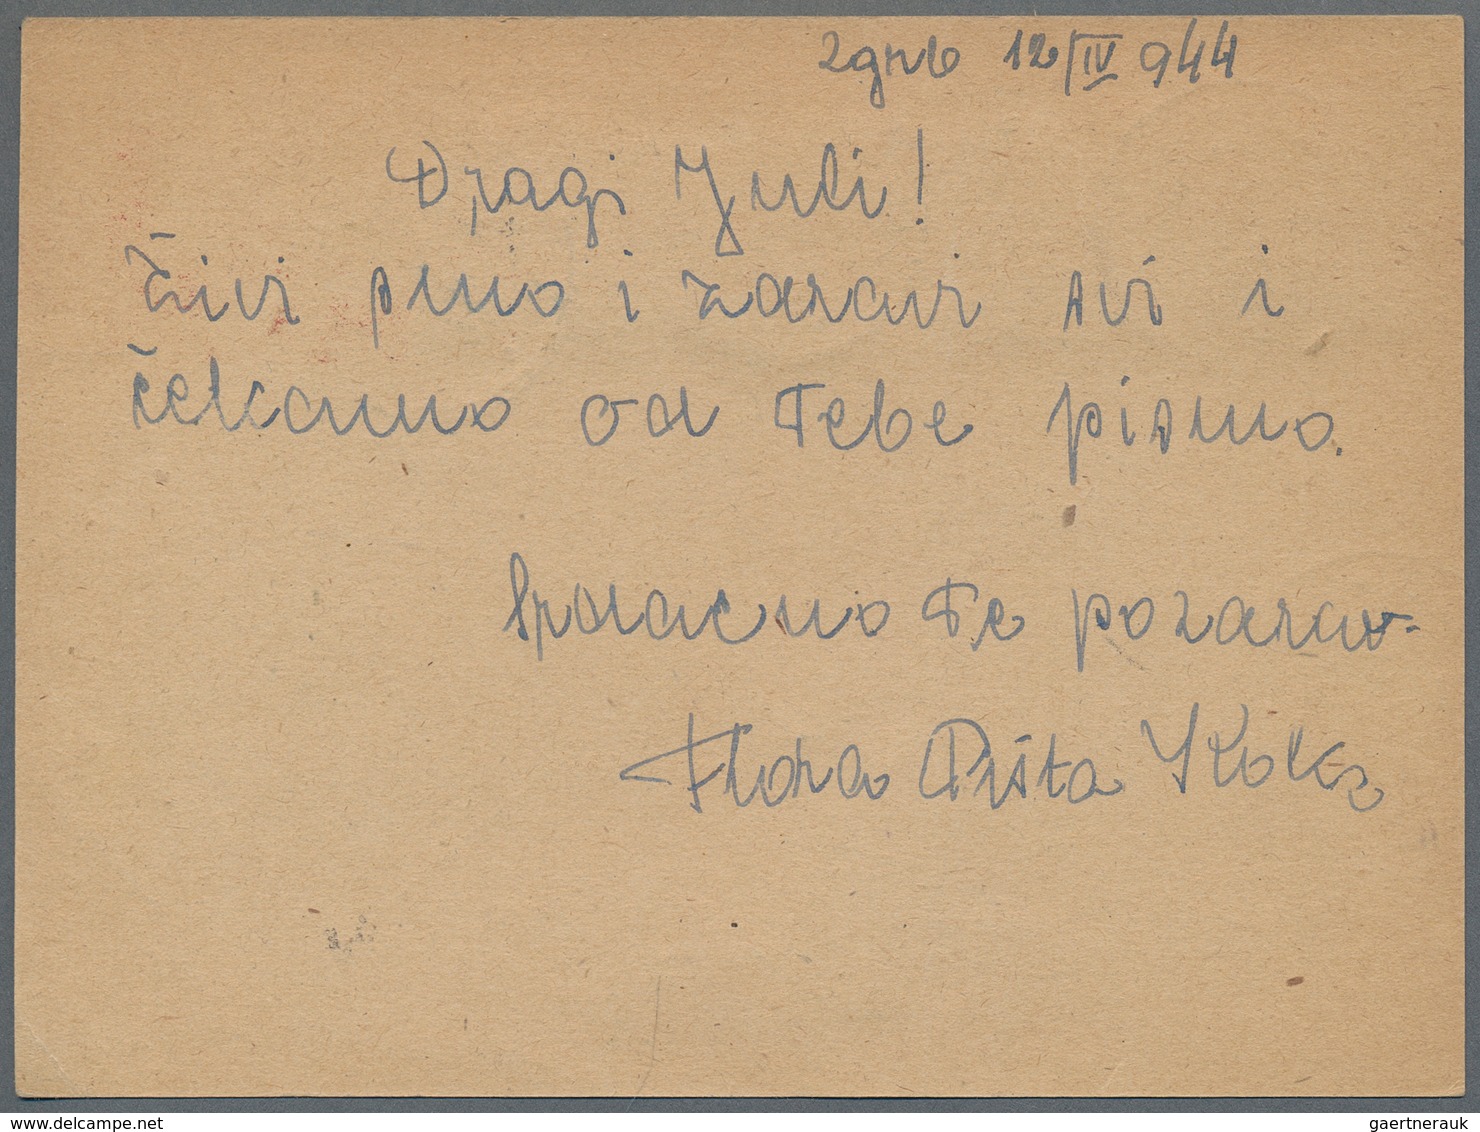 Zgrb 12/IV 944
Dragi Juli!
Živi smo i zdravi svi i
čekamo od Tebe pismo.
Srdačno Te pozdrav-
Flora Pišta Koka
gaertnerauk